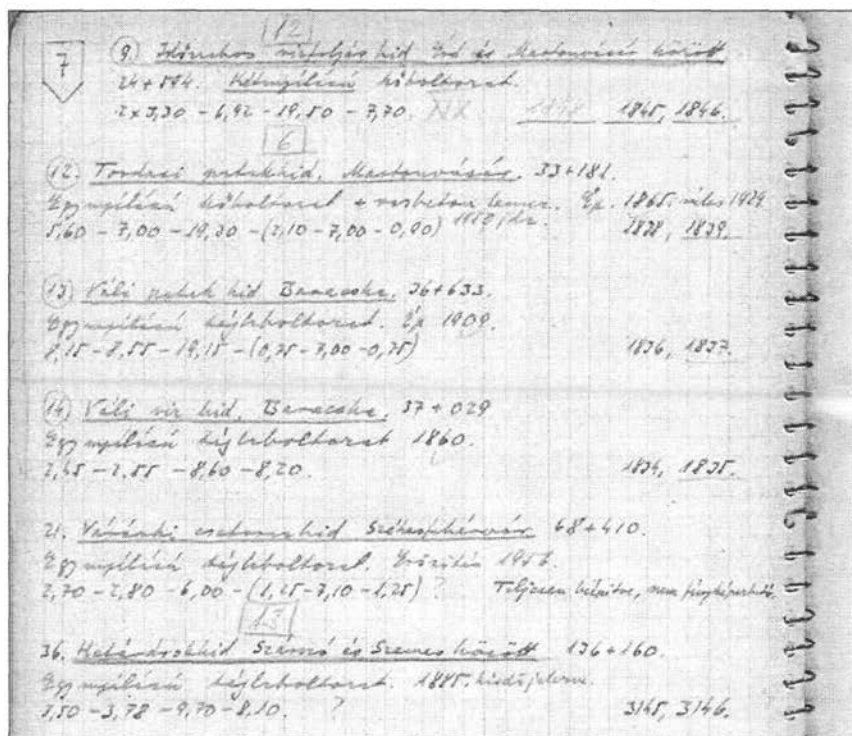 12
7
9. híd és Martonvásár között
24+594. Kétnyílású kőboltozat.
2x3,30 - 6,92 - 19,50 - 7,70. 1845, 1846.
6
12. Tordasi patakhid, Martonvásár, 33+181.
Egynyílású kőboltozat + vasbeton lemez. Ép. 1865. 1929
5,60 - 7,00 - 19,30 - 1838, 1839.
13. Váli patak hid Baracska, 36+633.
Egynyílású téglaboltozat. Ép 1909.
8,15 - 8,55 - 19,15 - (0,75 - 7,00 - 0,75) 1836, 1837.
14. Váli viz hid, Baracska, 37+029
Egynyílású téglaboltozat 1860.
2,45 - 2,55 - 8,60 - 8,20. 1834, 1835.
21. csatornahid Székesfehérvár 68+410.
Egynyílású téglaboltozat. Erősítés 1956.
2,70 - 2,80 - 6,00 - (1,25 - 7,10 - 1,25) ? Teljesen beépítve, nem fényképezhető.
13
36. Határárokhid Szárszó és Szemes között 136+160.
Egynyílású téglaboltozat. 1885.
3,50 - 3,78 - 9,70 - 8,10. ? 3145, 3146.